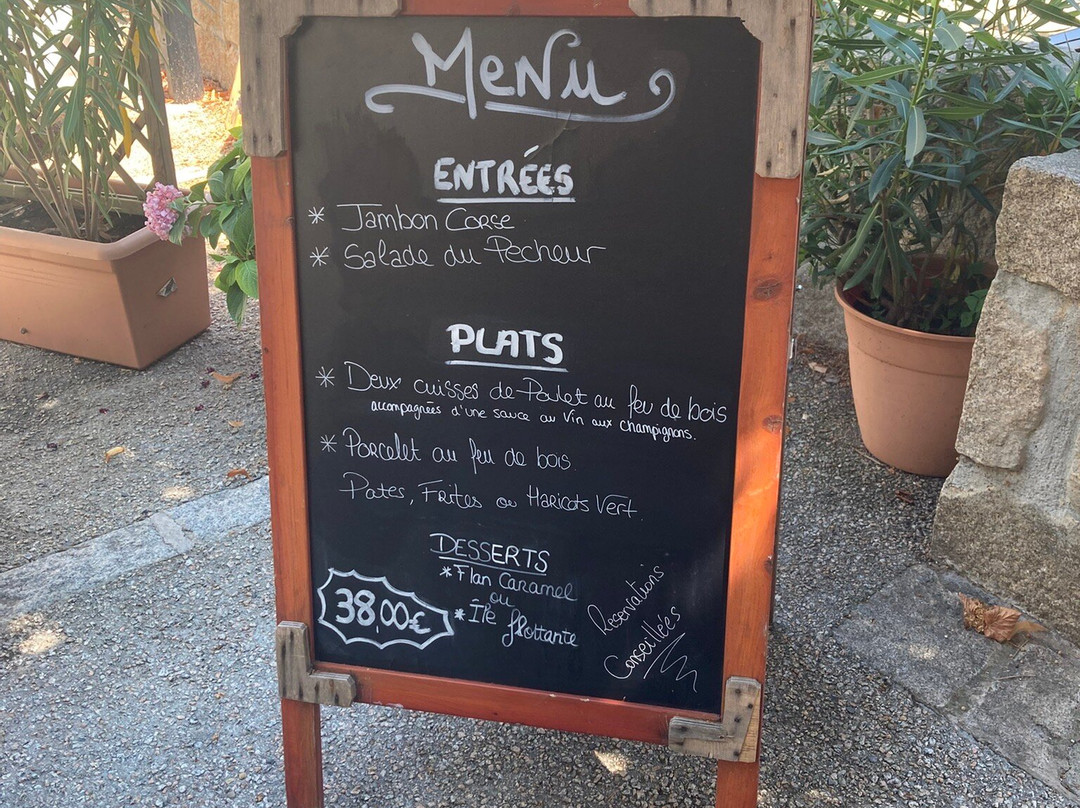 MeNu
ENTRÉES
* Jambon Corse
* Salade du Pecheur
PLATS
* Deux cuisses de Poulet au feu de bois
accompagnées d'une sauce au vin aux champignons.
* Porcelet au feu de bois.
Pates, Frites ou Haricots Vert.
DESSERTS
* Flan Caramel
ou
* Île flottante
38,00€
Reservations
Conseillées